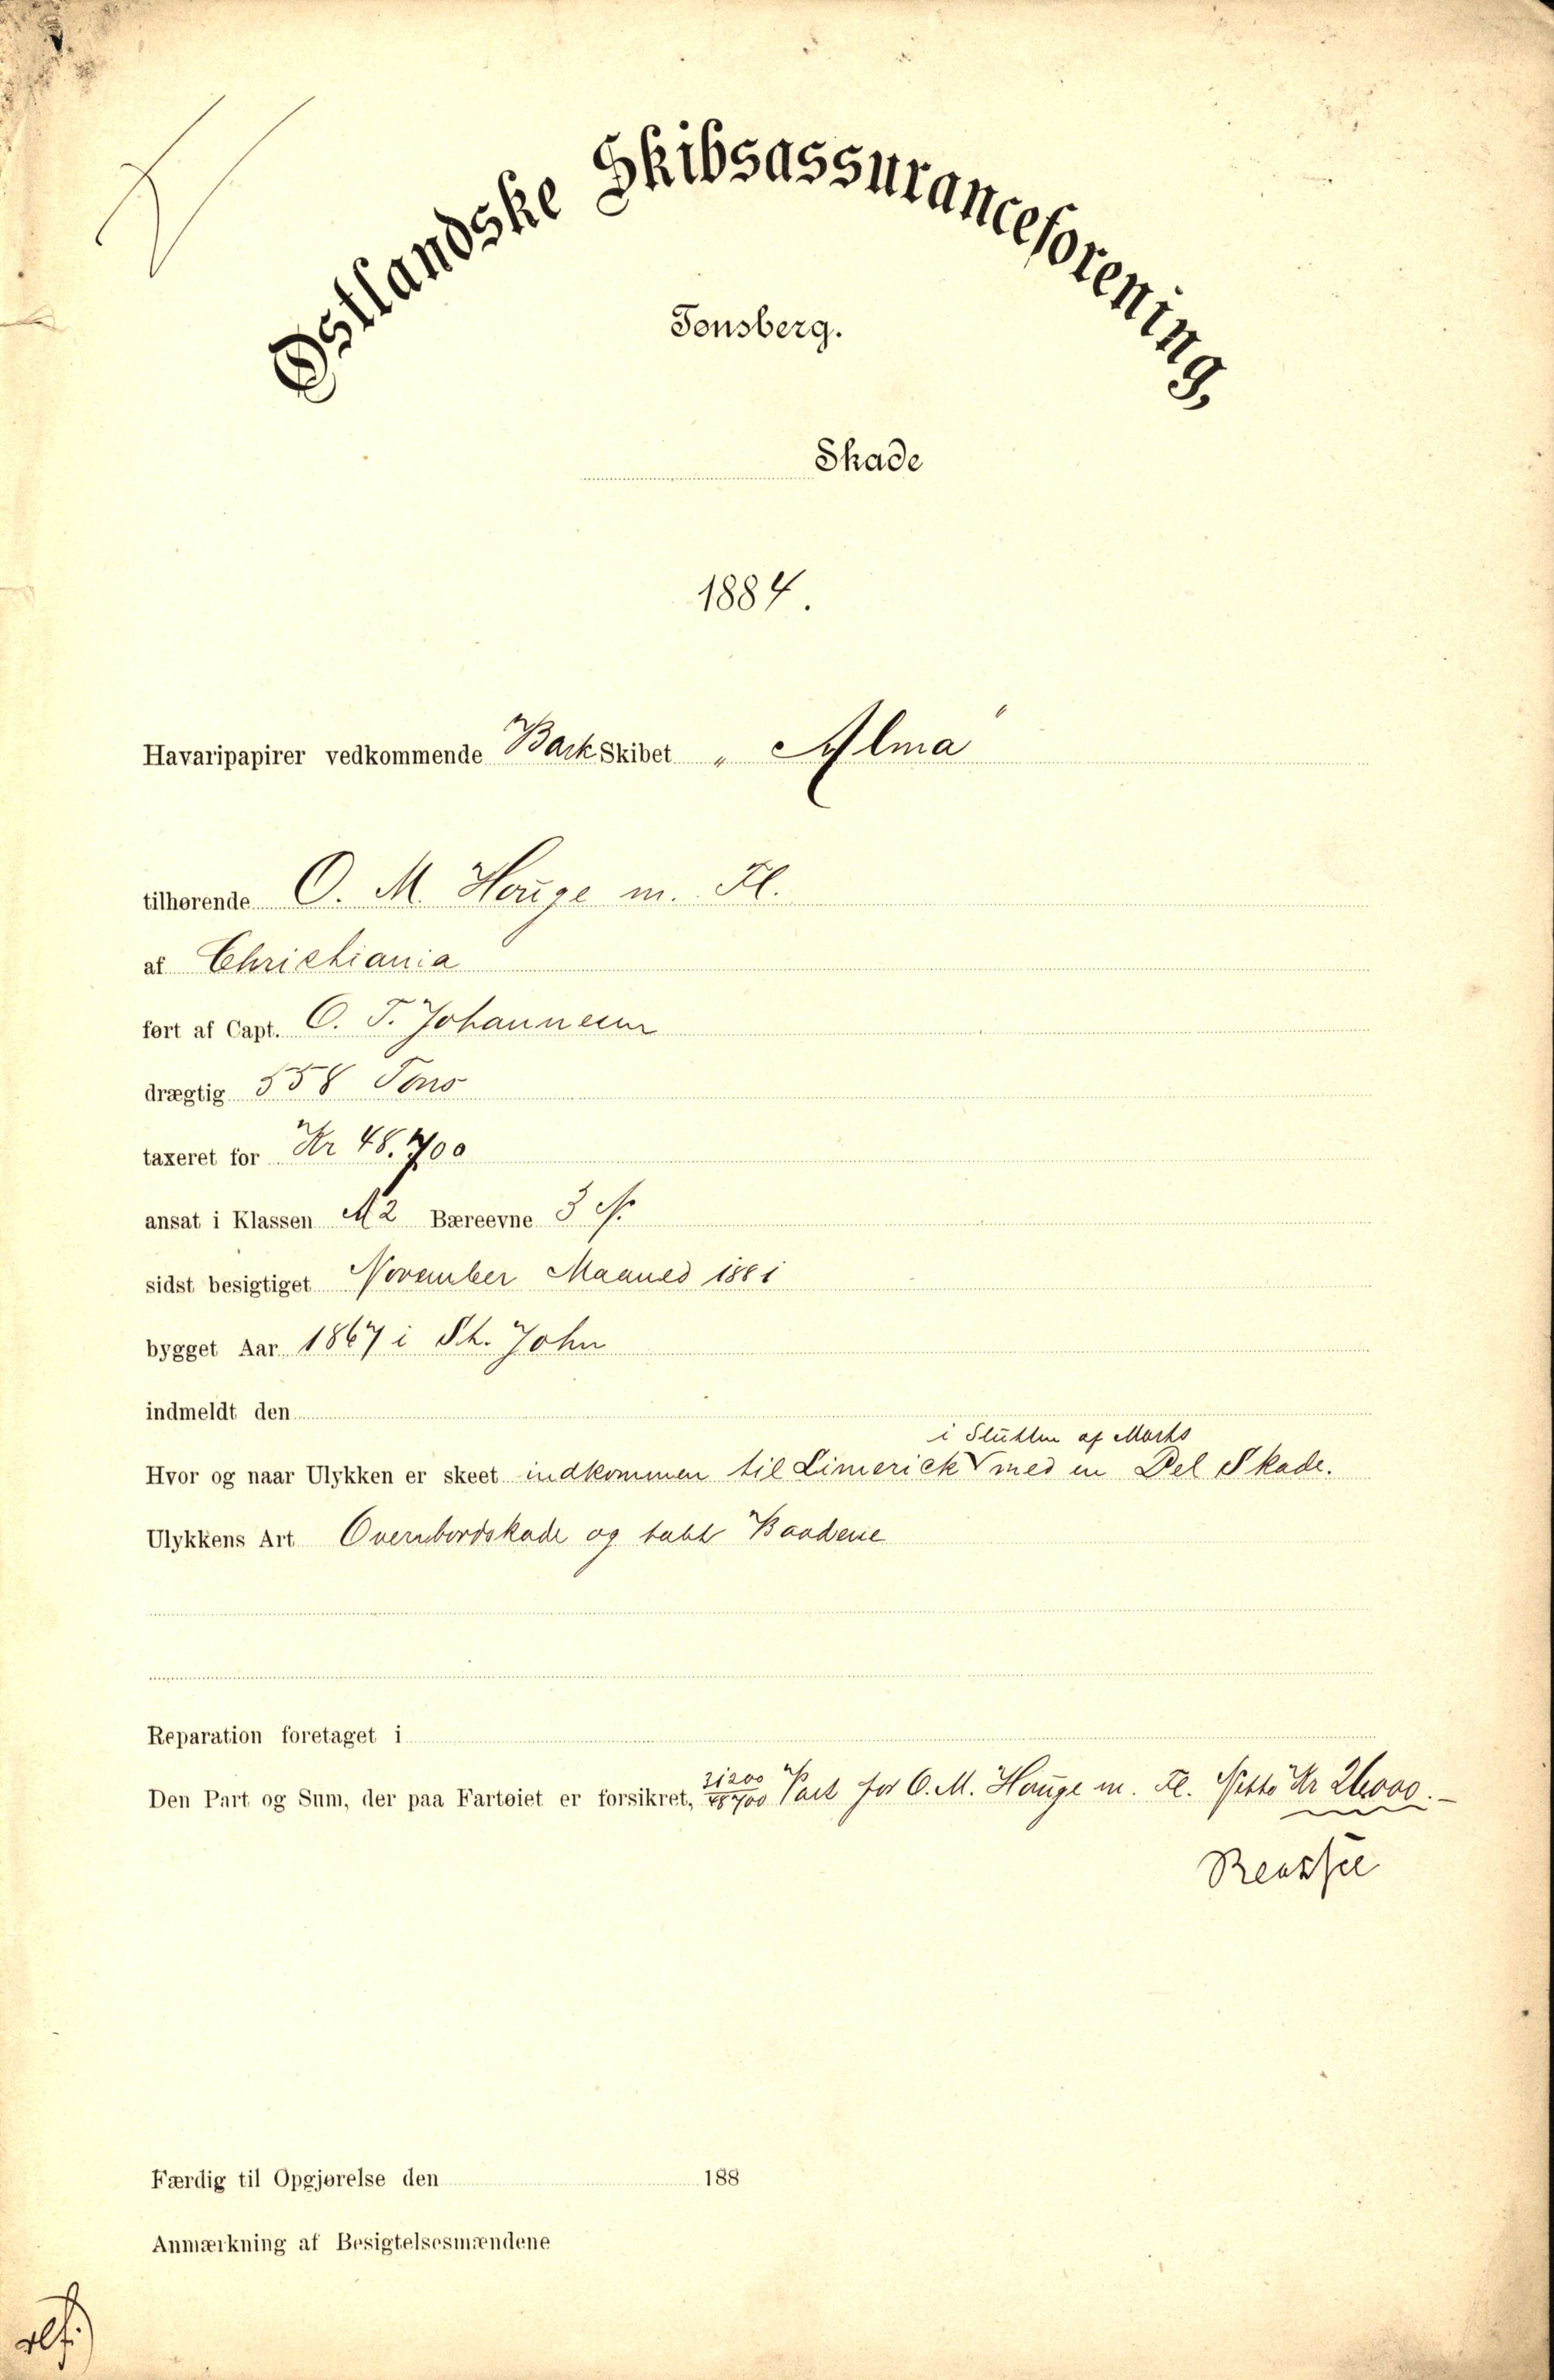 Østlandske Skibsassuranceforening,
Tønsberg.
Skade
1884.
Havaripapirer vedkommende Bark Skibet „Alma"
tilhørende O. M. Houge m. Fl.
af Christiania
ført af Capt. O. T. Johannesen
drægtig 558 Tons
taxeret for Kr 48.700
ansat i Klassen A 2 Bæreevne 3 N.
sidst besigtiget November Maaned 1881
bygget Aar 1867 i St. John
indmeldt den
i Slutten af Marts
Hvor og naar Ulykken er skeet indkommen til Limerick med en Del Skade.
Ulykkens Art Overbordskade og tabt Baadene
Reparation foretaget i
Den Part og Sum, der paa Fartøiet er forsikret, 31200/48700 Part for O. M. Houge m. Fl. Netto Kr 26000.–
Færdig til Opgjørelse den 188
Anmærkning af Besigtelsesmændene